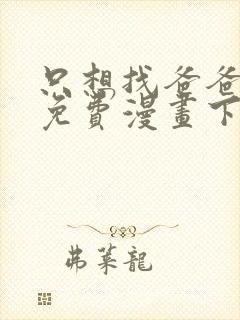 只想找爸爸
免費漫畫下
弗萊龍